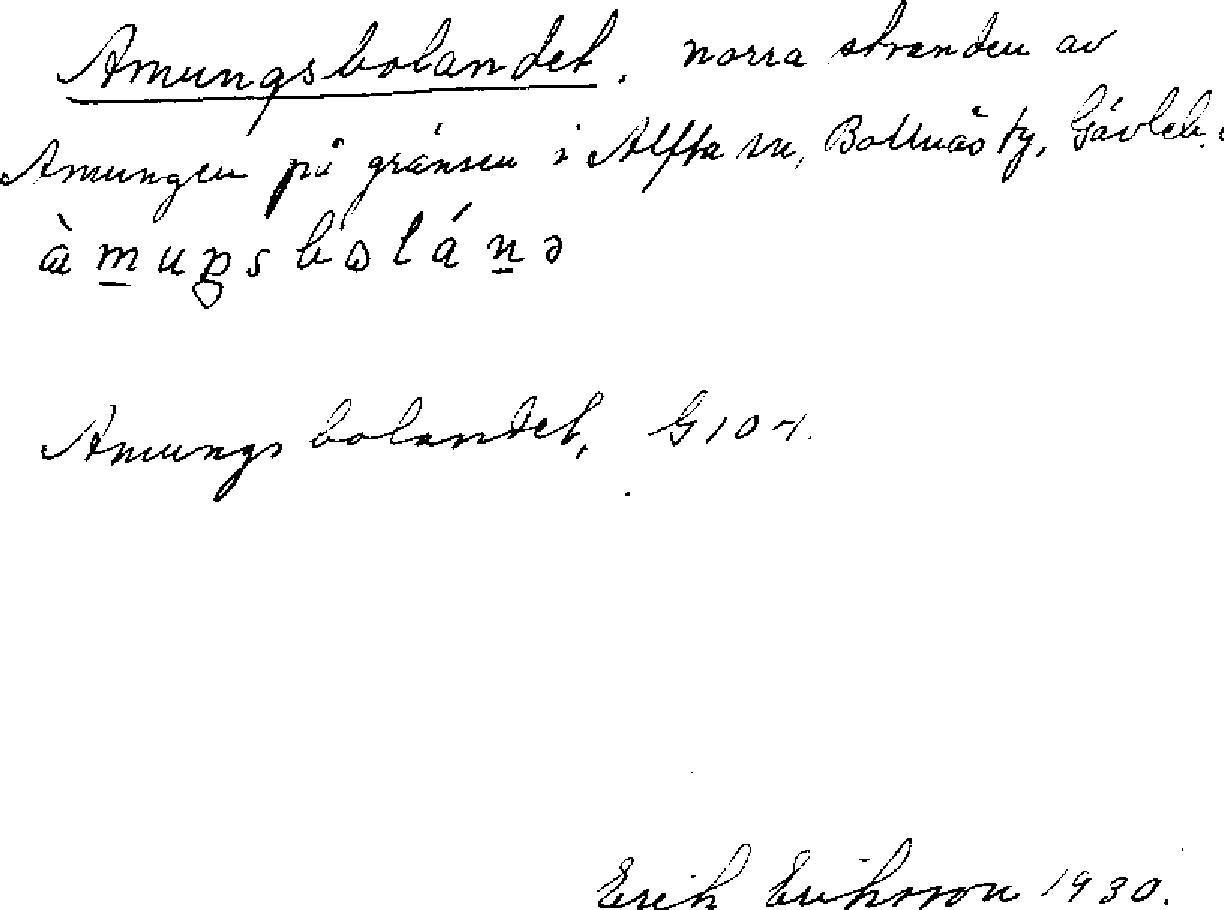 Amungsbolandet. norra stranden av
Amungen på gränsen i Alfta sn, Bollnäs tg, Gävleb.
Amungsbolandet, G10r.
Erik Eriksson 1930.